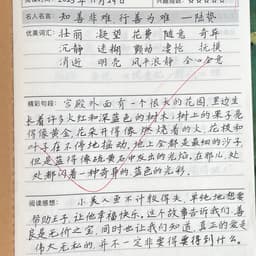 阅读时间：2023年11月29日
名人名言：知善非难 行善为难 —陆贽
优美词汇：壮丽 凝望 花费 随意 奇异
沉静 迷糊 颤动 凄怆 抚摸
消逝 明亮 风平浪静 全心全意
精彩句段：宫殿外面有一个很大的花园，里边生
长着许多火红和深蓝色的树木；树上的果子亮
得像黄金，花朵开得像燃烧着的火，花枝和
叶子在不停地摇动。地上全都是最细的沙子，
但是蓝得像硫黄石中发出的光焰。在那儿，处
处都闪着一种奇异的蓝色的光彩。
阅读感想：小美人鱼不计较得失，单纯地想要
帮助王子，让他幸福快乐。这个故事告诉我们，善
良是无价之宝，同时也让我们知道，真正的爱是
伟大无私的，并不一定非要得要得到什么。